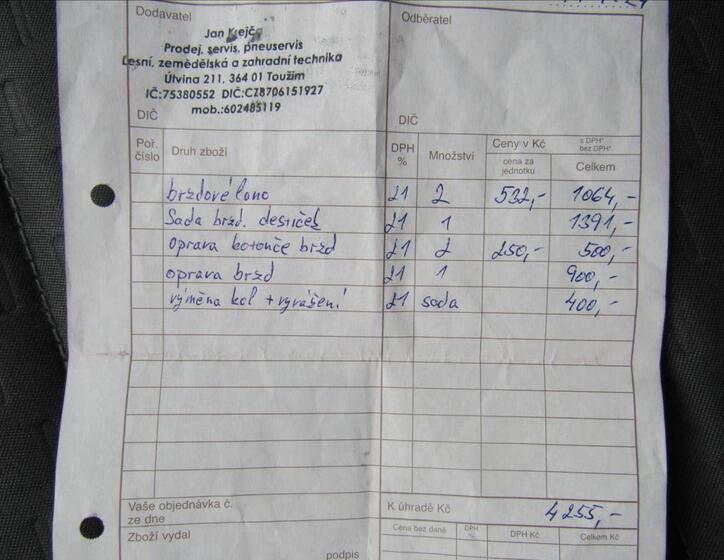 Dodavatel
Odběratel
Jan Krejčí
Prodej, servis, pneuservis
Lesní, zemědělská a zahradní technika
Útvina 211, 364 01 Toužim
IČ:75380552 DIČ:CZ8706151927
mob.:602485119
DIČ
DIČ
Poř. číslo Druh zboží DPH % Množství Ceny v Kč s DPH* bez DPH*
cena za jednotku Celkem
brzdové lano 21 2 532,- 1064,-
Sada brzd. destiček 21 1 1391,-
oprava kotouče brzd 21 2 250,- 500,-
oprava brzd 21 1 900,-
výměna kol + vyvášení 21 sada 400,-
Vaše objednávka č.
ze dne
K úhradě Kč 4255,-
Zboží vydal
Cena bez daně DPH % DPH Kč Celkem Kč
podpis